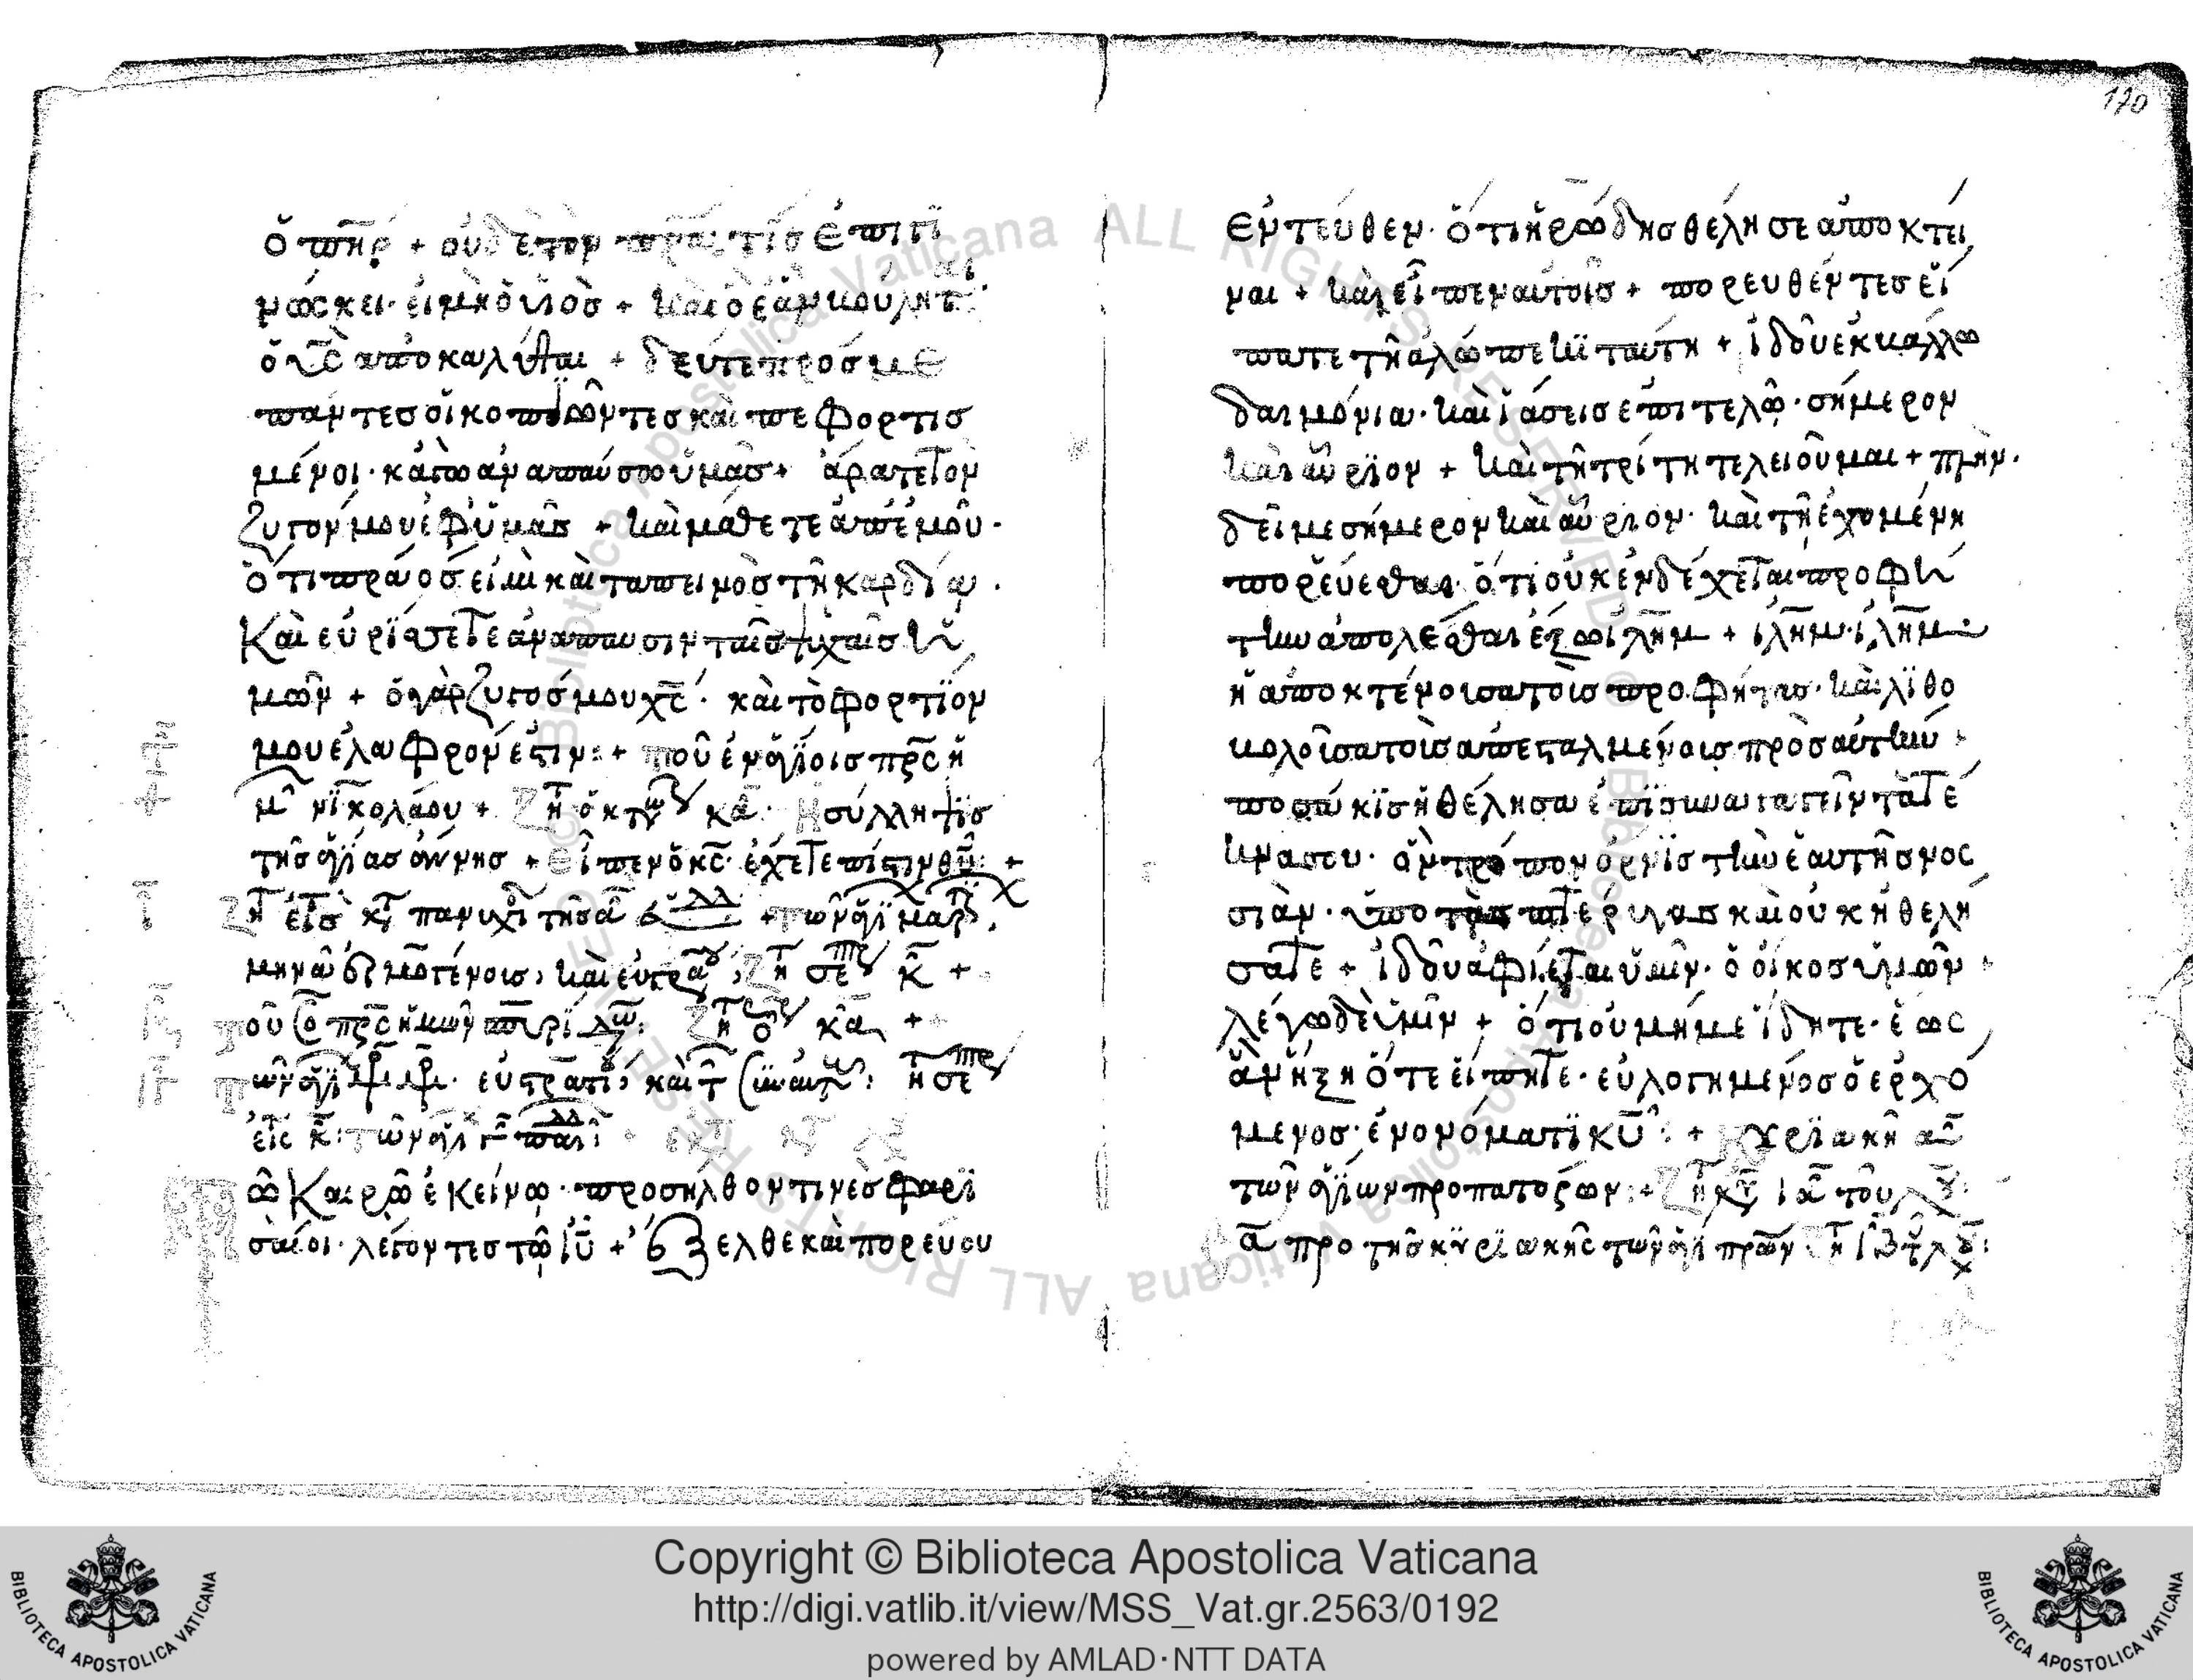 ὁ πηρ + οὐδὲ τον πρα τίς ἐπιγι
νώσκει· εἰ μὴ ὁ υιὸσ + καὶ ὁ ἐὰν βούλητ
ὁ υς ἀποκαλύψαι + δεῦτε πρόσ με
πάντεσ οἱ κοπιῶντεσ καὶ πεφορτισ
μένοι· κἀγὼ ἀναπαύσω ὑμᾶσ + ἄρατε τὸν
ζυγόν μου ἐφ ὑμᾶσ + καὶ μάθετε ἀπ ἐμοῦ·
ὅτι πράοσ εἰμὶ καὶ ταπεινὸσ τῆ καρδία·
Καὶ εὑρίσετε ἀνάπαυσιν ταῖσ ψυχαῖσ ὑ
μῶν + ὁ γὰρ ζυγόσ μου χς· καὶ τὸ φορτίον
μου ἐλαφρόν ἐστιν: + τοῦ ἐν ἁγίοισ πρς ἡ
μ νικολάου + Ζητ ὀκτω κα· Η σύλληψισ
τῆσ ἁγίασ ἄννησ + εἶπεν ὁ κς· ἔχετε πίστιν θυ: +
τῶν ἁγί μαρ
μηνᾶ ἑρμογένουσ, καὶ εὐγρα
τοῦ πρς ἡμῶν
τῶν ἁγί εὐστρατί, καὶ τ
τῶν ἁγί
ῶ Καιρῶ ἐκείνω· προσῆλθον τινὲσ φαρι
σαίοι· λέγοντεσ τῶ ιυ + ἔξελθε καὶ πορεύου
170
ἐντεύθεν· ὅτι ἡρώδησ θέλη σε ἀποκτεῖ
ναι + καὶ εἶπεν αὐτοῖσ + πορευθέντεσ εἴ
πατε τῆ ἀλώπεκι ταύτη + ἰδοὺ ἐκβάλλω
δαιμόνια· καὶ ἰάσεισ ἐπιτελῶ· σήμερον
καὶ αὔριον + καὶ τῆ τρίτη τελειοῦμαι + πλὴν·
δεῖ με σήμερον καὶ αὔριον· καὶ τῆ ἐχομένη
πορεύεσθαι· ὅτι οὐκ ἐνδέχεται προφή
την ἀπολέσθαι ἔξω ιλημ + ιλημ· ιλημ·
ἡ ἀποκτένουσα τοὺσ προφήτασ· καὶ λιθο
βολοῦσα τοὺσ ἀπεσταλμένουσ πρὸσ αὐτήν·
ποσάκισ ἠθέλησα ἐπισυναγαγεῖν τὰ τέ
κνα σου· ὃν τρόπον ὄρνισ τὴν ἑαυτῆσ νοσ
σιὰν· ὑπὸ τὰσ πτέρυγασ καὶ οὐκ ἠθελή
σατε + ἰδοὺ ἀφίεται ὑμῖν· ὁ οἶκοσ ὑμῶν·
λέγω δὲ ὑμῖν + ὅτι οὐ μή με ἴδητε· ἕωσ
ἂν ἥξη ὅτε εἴπητε· εὐλογημένοσ ὁ ἐρχό
μενοσ· ἐν ὀνόματι κυ: + Κυριακῆ α
τῶν ἁγίων προπατόρων: + Ζητ κυ ια τοῦ λου:
α προ τῆσ κυριακῆς τῶν ἁγί πρων
Copyright © Biblioteca Apostolica Vaticana
http://digi.vatlib.it/view/MSS_Vat.gr.2563/0192
powered by AMLAD·NTT DATA
BIBLIOTECA APOSTOLICA VATICANA
BIBLIOTECA APOSTOLICA VATICANA